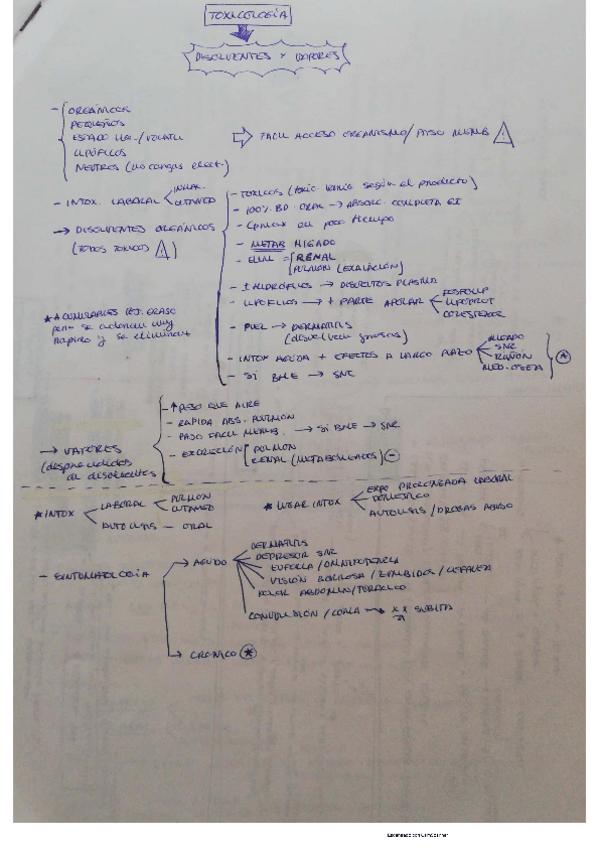 TOXICOLOGÍA
DISOLVENTES Y VAPORES
- ORGÁNICOS
PEQUEÑOS
ESTADO LIQ./VOLATIL
LIPÓFILOS
NEUTROS (no cargas elect.)
FACIL ACCESO ORGANISMO/PASO MEMB
- INTOX. LABORAL
INHAL.
CUTANEO
→ DISOLVENTES ORGÁNICOS
(TODOS TOXICOS)
- TOXICOS (según el producto)
- 100% BD ORAL → ABSORC. COMPLETA GI
- Cpmax en poco tiempo
- METAB HIGADO
- ELIM = RENAL
PULMON (EXALACIÓN)
- ± HIDRÓFILOS → DISUELTOS PLASMA
- LIPOFILOS → + PARTE APOLAR
FOSFOLIP
LIPOPROT
COLESTEROL
- PIEL → DERMATITIS
(disuelven grasas)
- INTOX AGUDA + EFECTOS A LARGO PLAZO
HIGADO
SNC
RIÑÓN
MED. OSEA
*
- SI BHE → SNC
* ACUMULABLES TEJ. GRASO
pero se acumulan muy
rapido y se eliminan
→ VAPORES
(desprendidos
de disolventes)
- ↑ PESO QUE AIRE
- RAPIDA ABS. PULMON
- PASO FACIL MEMB. → SI BHE → SNC
- EXCRECIÓN
PULMON
RENAL (METABOLIZADOS) -
* INTOX
LABORAL
PULMON
CUTANEO
AUTOLISIS - ORAL
* LUGAR INTOX
EXPO PROLONGADA LABORAL
DOMESTICO
AUTOLISIS/DROGAS ABUSO
- SINTOMATOLOGIA
→ AGUDO
DERMATITIS
DEPRESOR SNC
EUFORIA/OMNIPOTENCIA
VISIÓN BORROSA/ZUMBIDOS/CEFALEA
DOLOR ABDOMEN/TORACICO
CONVULSIÓN/COMA → XX SUBITA
→ CRONICO *
Escaneado con CamScanner